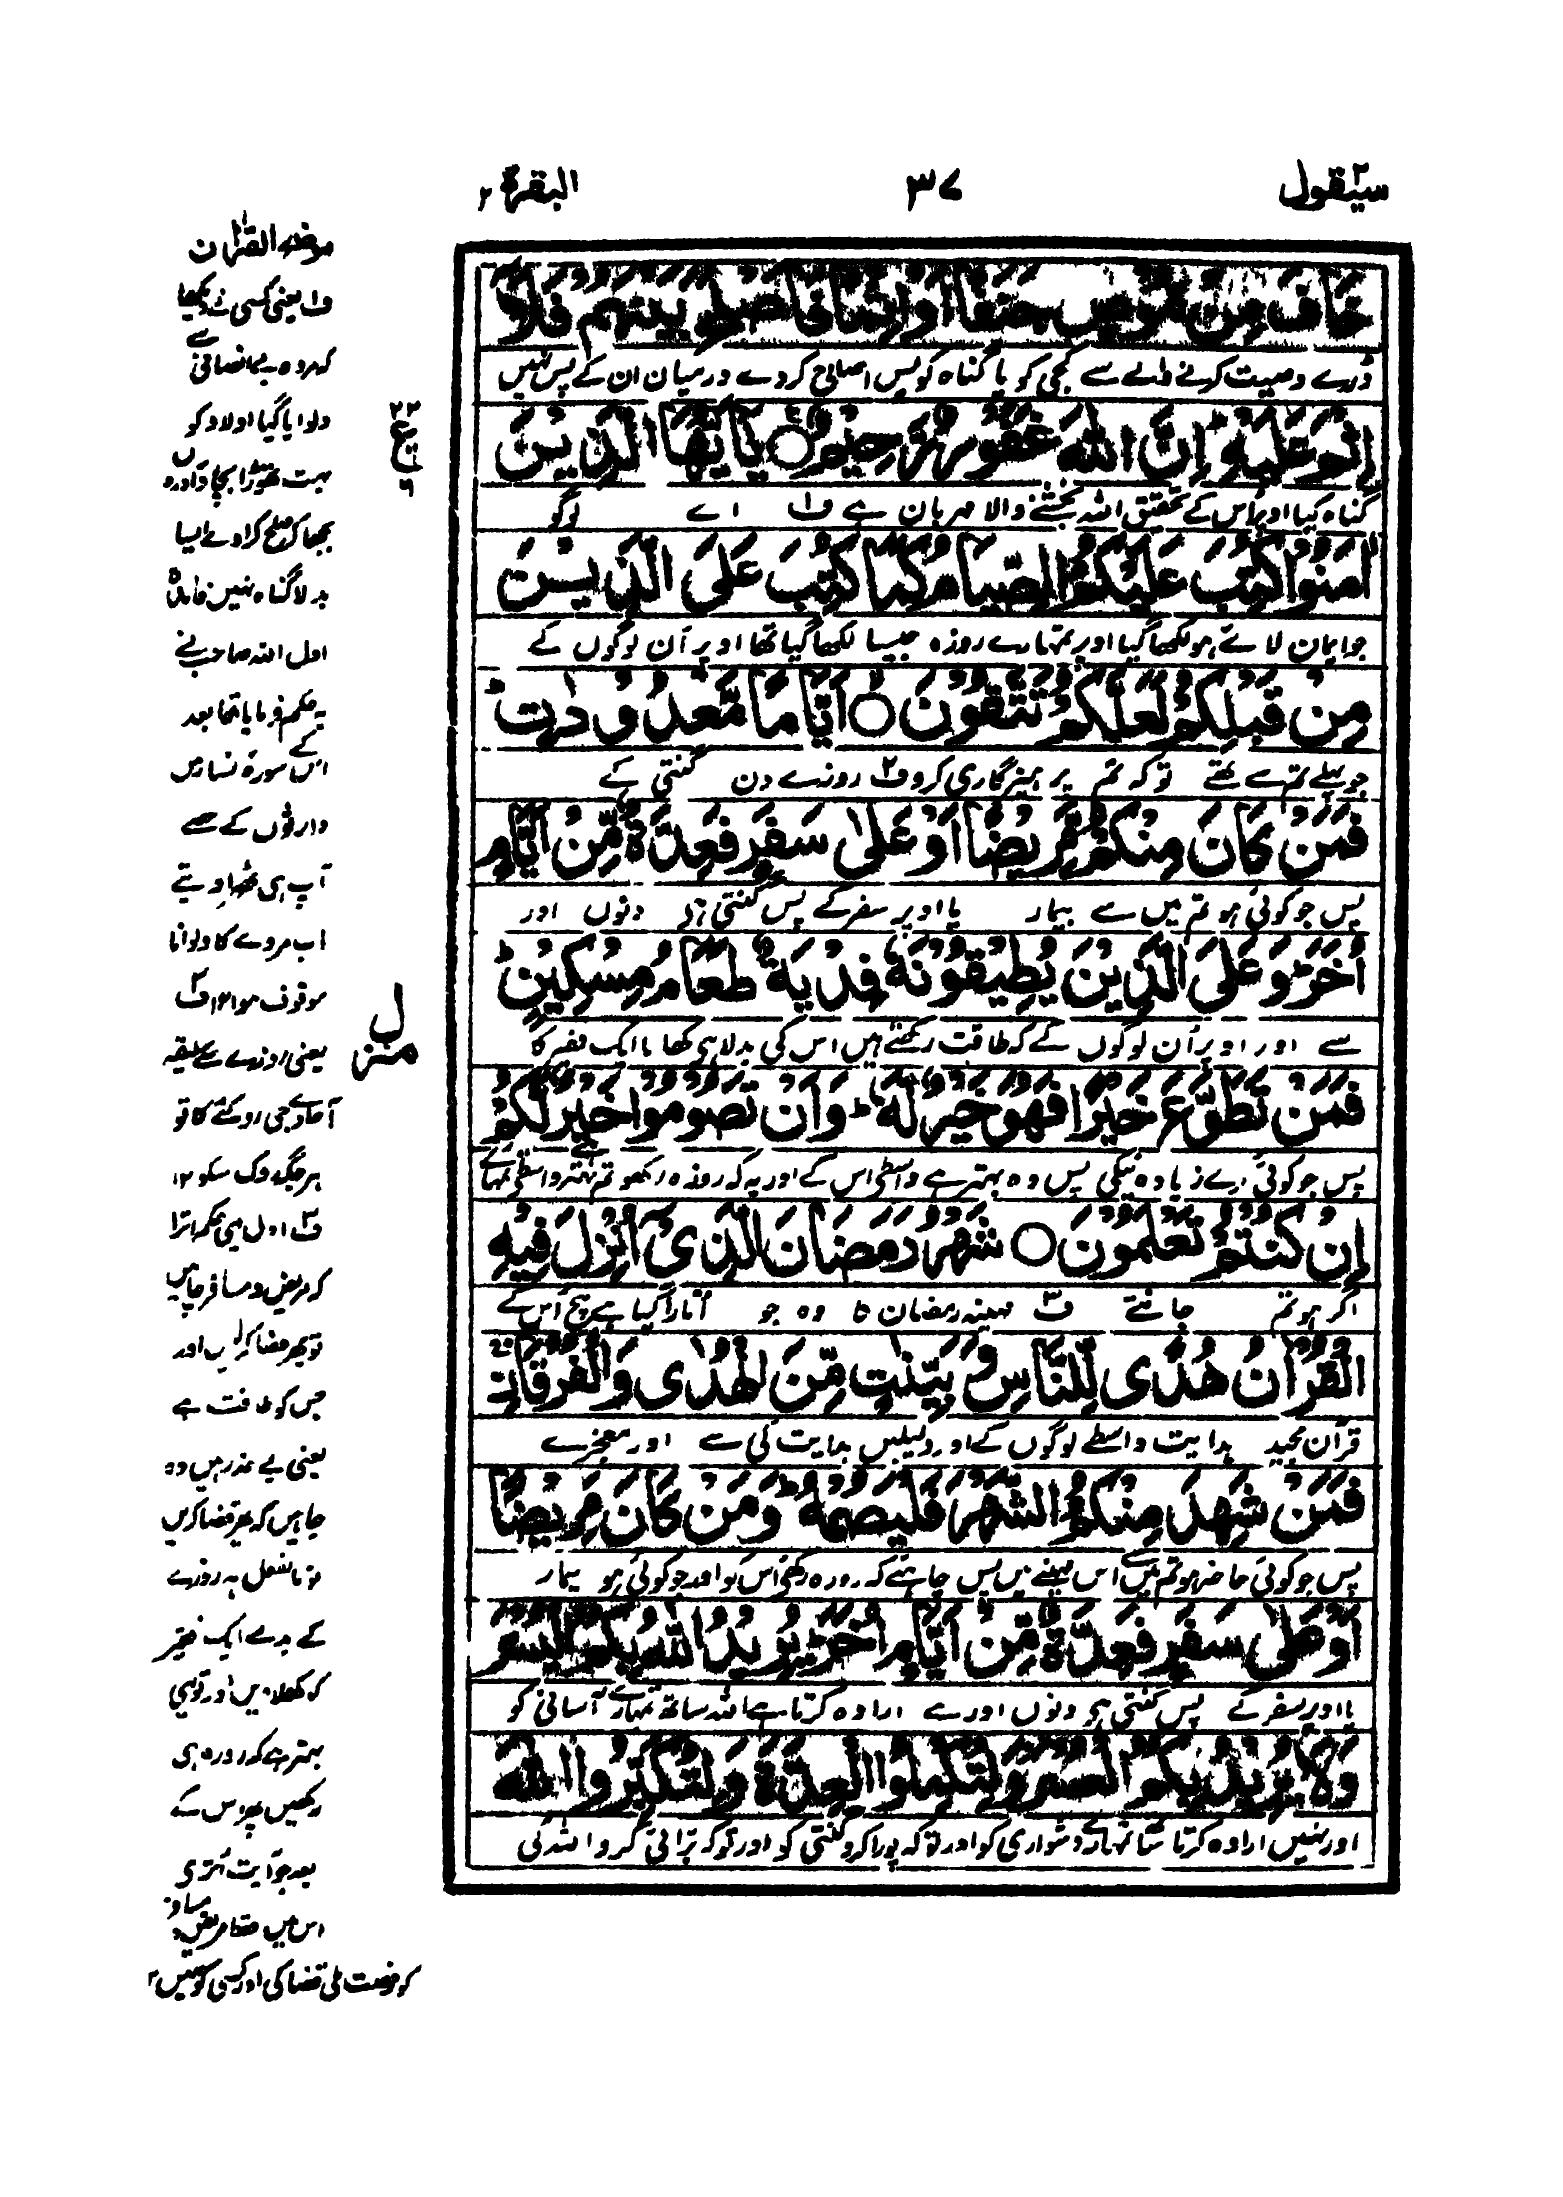 سیقول ٢
٣٧
البقرة ٢
خَافَ مِنْ مُّوصٍ جَنَفًا أَوْ إِثْمًا فَأَصْلَحَ بَيْنَهُمْ فَلَا
ڈرے وصیت کرنے والے سے کجی کو یا گناہ کو پس اصلاح کردے درمیان ان کے پس نہیں
إِثْمَ عَلَيْهِ ؕ إِنَّ اللّٰهَ غَفُورٌ رَّحِيمٌ ○ يٰٓأَيُّهَا الَّذِينَ
گناہ کیا اوپر اس کے تحقیق اللہ بخشنے والا مہربان ہے ف١ اے لوگو
اٰمَنُوا كُتِبَ عَلَيْكُمُ الصِّيَامُ كَمَا كُتِبَ عَلَى الَّذِينَ
جو ایمان لائے ہو لکھا گیا اوپر تمہارے روزہ جیسا لکھا گیا تھا اوپر ان لوگوں کے
مِنْ قَبْلِكُمْ لَعَلَّكُمْ تَتَّقُونَ ○ أَيَّامًا مَّعْدُودٰتٍ ؕ
جو پہلے تم سے تھے توکہ تم پرہیزگاری کرو ف٢ روزے دن گنتی کے
فَمَنْ كَانَ مِنْكُمْ مَّرِيضًا أَوْ عَلٰى سَفَرٍ فَعِدَّةٌ مِّنْ أَيَّامٍ
پس جو کوئی ہو تم میں سے بیمار یا اوپر سفر کے پس گنتی ہے دنوں اور
أُخَرَ ؕ وَعَلَى الَّذِينَ يُطِيقُونَهُ فِدْيَةٌ طَعَامُ مِسْكِينٍ ؕ
سے اور اوپر ان لوگوں کے کہ طاقت رکھتے ہیں اس کی بدلا ہے کھانا ایک فقیر کا
فَمَنْ تَطَوَّعَ خَيْرًا فَهُوَ خَيْرٌ لَّهُ ؕ وَأَنْ تَصُومُوا خَيْرٌ لَّكُمْ
پس جو کوئی کرے زیادہ نیکی پس وہ بہتر ہے واسطے اس کے اور یہ کہ روزہ رکھو تم بہتر ہے واسطے تمہارے
إِنْ كُنْتُمْ تَعْلَمُونَ ○ شَهْرُ رَمَضَانَ الَّذِيٓ أُنْزِلَ فِيهِ
اگر ہو تم جانتے ف٣ مہینہ رمضان کا وہ جو اتارا گیا ہے بیچ اس کے
الْقُرْاٰنُ هُدًى لِّلنَّاسِ وَبَيِّنٰتٍ مِّنَ الْهُدٰى وَالْفُرْقَانِ
قرآن مجید ہدایت واسطے لوگوں کے اور دلیلیں ہدایت کی سے اور معجزے
فَمَنْ شَهِدَ مِنْكُمُ الشَّهْرَ فَلْيَصُمْهُ ؕ وَمَنْ كَانَ مَرِيضًا
پس جو کوئی حاضر ہو تم میں سے اس مہینے میں پس چاہئے کہ روزہ رکھے اس کو اور جو کوئی ہو بیمار
أَوْ عَلٰى سَفَرٍ فَعِدَّةٌ مِّنْ أَيَّامٍ أُخَرَ ؕ يُرِيدُ اللّٰهُ بِكُمُ الْيُسْرَ
یا اوپر سفر کے پس گنتی ہے دنوں اور سے ارادہ کرتا ہے اللہ ساتھ تمہارے آسانی کو
وَلَا يُرِيدُ بِكُمُ الْعُسْرَ وَلِتُكْمِلُوا الْعِدَّةَ وَلِتُكَبِّرُوا اللّٰهَ
اور نہیں ارادہ کرتا ساتھ تمہارے دشواری کو اور توکہ پورا کرو گنتی کو اور توکہ بڑائی کرو اللہ کی
موضح القرآن
ف١ یعنی کسی نے دیکھا
کہ مردہ بے انصافی سے
دلوا گیا اولاد کو
بہت تھوڑا
سمجھا کر صلح کرادے ایسا
بدلا گناہ نہیں فائدہ
اول اللہ صاحب نے
یہ حکم فرمایا تھا بعد
اس کے سورۃ نساء میں
وارثوں کے حصے
آپ ہی ٹھہرا دیتے
اب مردے کا دلوانا
موقوف ہوا ١٢ ف٢
یعنی روزے سے سلیقہ
آجاوے جی روکنے کا تو
ہر جگہ روک سکو ١٢
ف٣ اول یہی حکم اترا
کہ مریض و مسافر چاہیں
تو پھر قضا کر لیں اور
جس کو طاقت ہے
یعنی بے عذر ہیں وہ
چاہیں کہ پھر قضا کریں
تو بالفعل یہ روزے
کے بدلے ایک فقیر
کو کھلادیں اور تو بھی
بہتر ہے کہ روزہ ہی
رکھیں پھر اس کے
بعد جو آیت اتری
اس میں فقط مریض و مسافر
کو رخصت ملی قضا کی اور کسی کو نہیں ١٢
٢٢
ع
٦
منزل